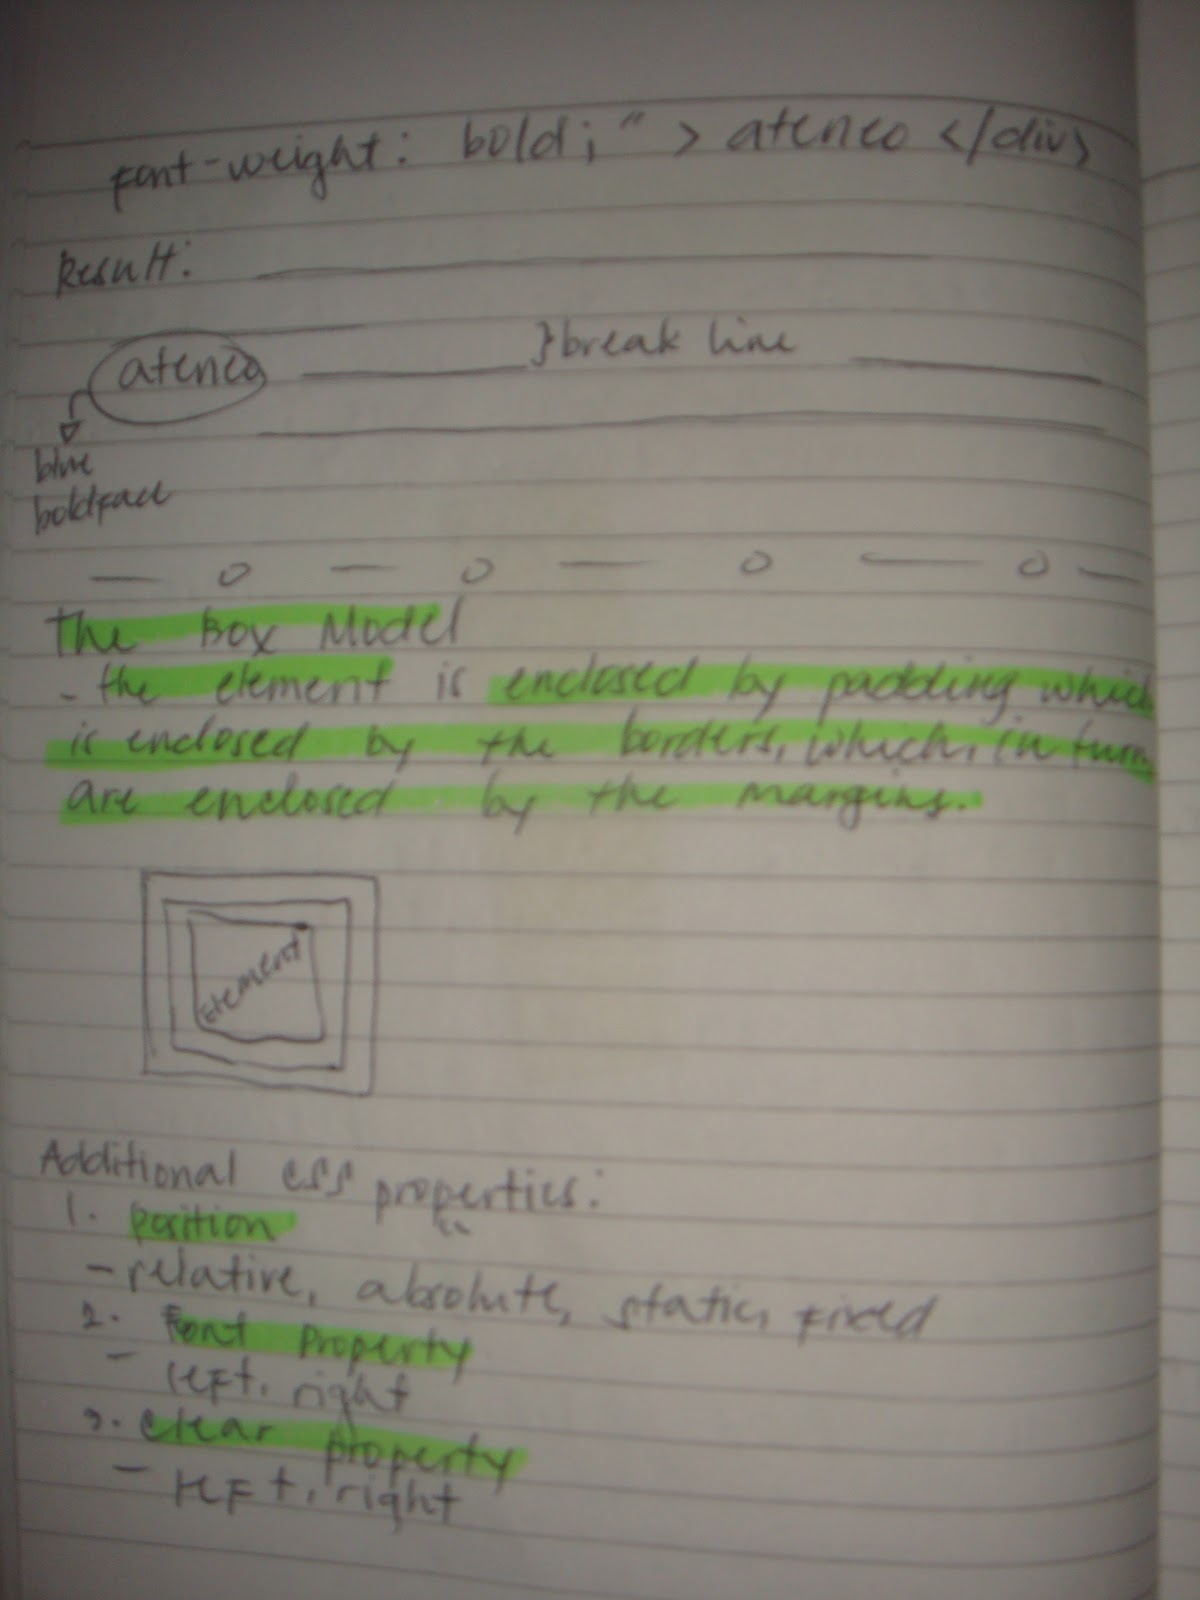 font-weight: bold; " > ateneo </div>
Result:
ateneo } break line
blue
boldface
The Box Model
- the element is enclosed by padding which
is enclosed by the borders, which, in turn
are enclosed by the margins.
Element
Additional CSS properties:
1. position
- relative, absolute, static, fixed
2. Font Property
- left, right
3. Clear property
- left, right